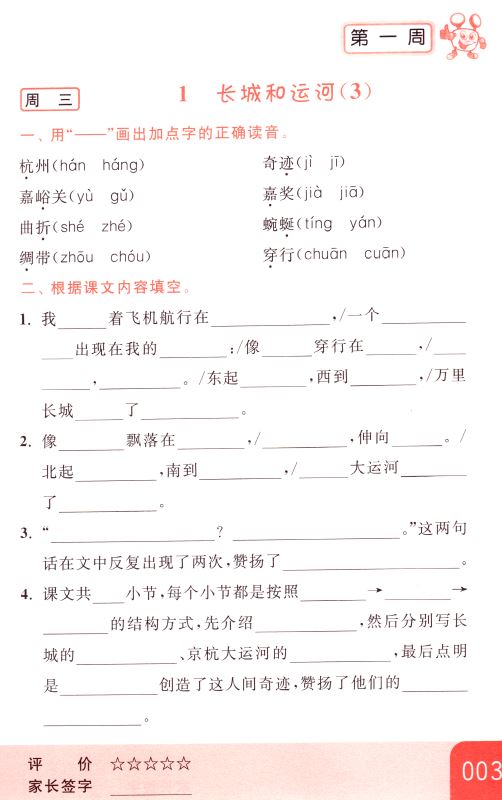 第一周
周 三
1 长城和运河(3)
一、用“——”画出加点字的正确读音。
杭州(hán háng) 奇迹(jì jī)
嘉峪关(yù gǔ) 嘉奖(jià jiā)
曲折(shé zhé) 蜿蜒(tíng yán)
绸带(zhōu chóu) 穿行(chuān cuān)
二、根据课文内容填空。
1. 我______着飞机航行在______________,/一个__________
____出现在我的________:/像______穿行在______,/____
______,__________。/东起________,西到________,/万里
长城______了____________。
2. 像________飘落在________,/__________,伸向______。/
北起__________,南到________,/______大运河________
了____________。
3. “____________________? ____________________。”这两句
话在文中反复出现了两次,赞扬了______________________。
4. 课文共____小节,每个小节都是按照________→________→
________的结构方式,先介绍____________,然后分别写长
城的____________、京杭大运河的____________,最后点明
是____________创造了这人间奇迹,赞扬了他们的________
____________。
评 价 ☆☆☆☆☆
家长签字 __________
003